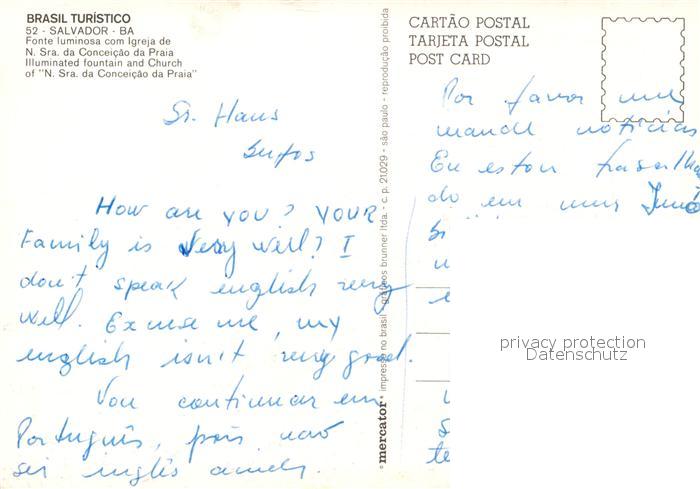 BRASIL TURÍSTICO
52 - SALVADOR - BA
Fonte luminosa com Igreja de
N. Sra. da Conceição da Praia
Illuminated fountain and Church
of "N. Sra. da Conceição da Praia"
Sr. Hans
How are you? YOUR
Family is very well? I
don't speak english very
well. Excuse me, my
english isn't very good.
Vou continuar em
Português, pois não
sei inglês ainda.
mercator impresso no brasil - gráficos brunner ltda. - c. p. 21.029 - são paulo - reprodução proibida
CARTÃO POSTAL
TARJETA POSTAL
POST CARD
Por favor me
mande notícias
Eu estou trabalha
do em uma
privacy protection
Datenschutz
te